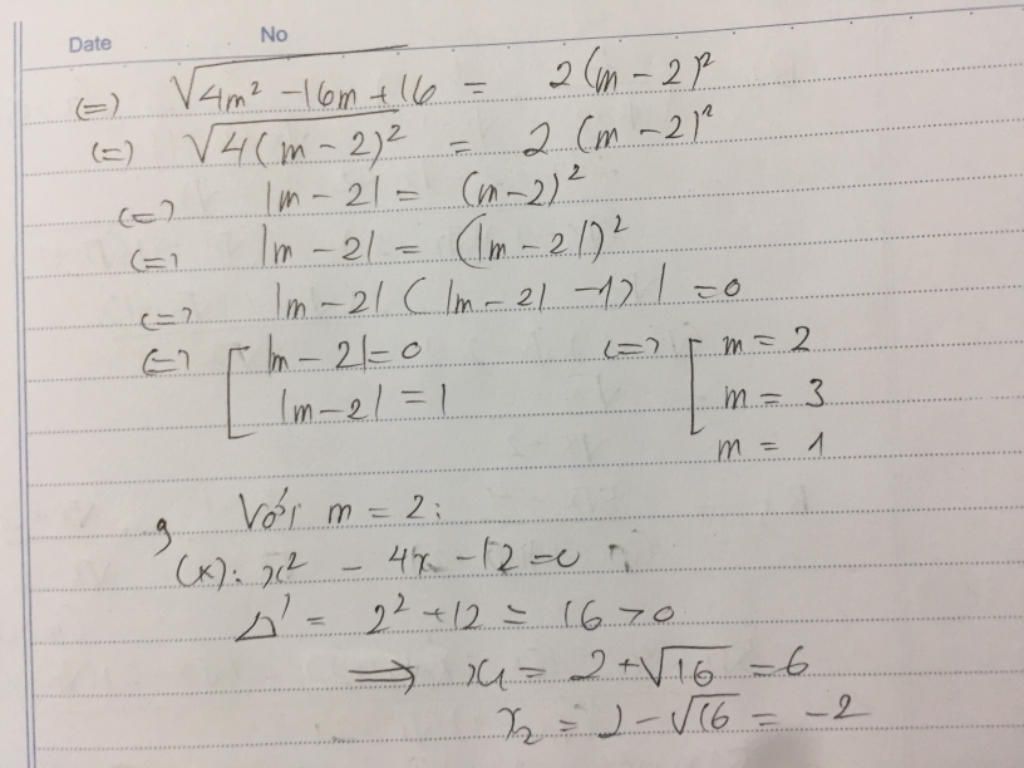 Date No
(=) √4m² -16m + 16 = 2(m - 2)²
(=) √4(m - 2)² = 2 (m - 2)²
(=) |m - 2| = (m-2)²
(=) |m - 2| = (|m - 2|)²
(=) |m - 2| ( |m - 2| -1) | = 0
(=) [ |m - 2| = 0 (=) [ m = 2
|m - 2| = 1 m = 3
m = 1
Với m = 2:
(*): x² - 4x - 12 = 0
Δ' = 2² + 12 = 16 > 0
=> x₁ = 2 + √16 = 6
x₂ = 2 - √16 = -2